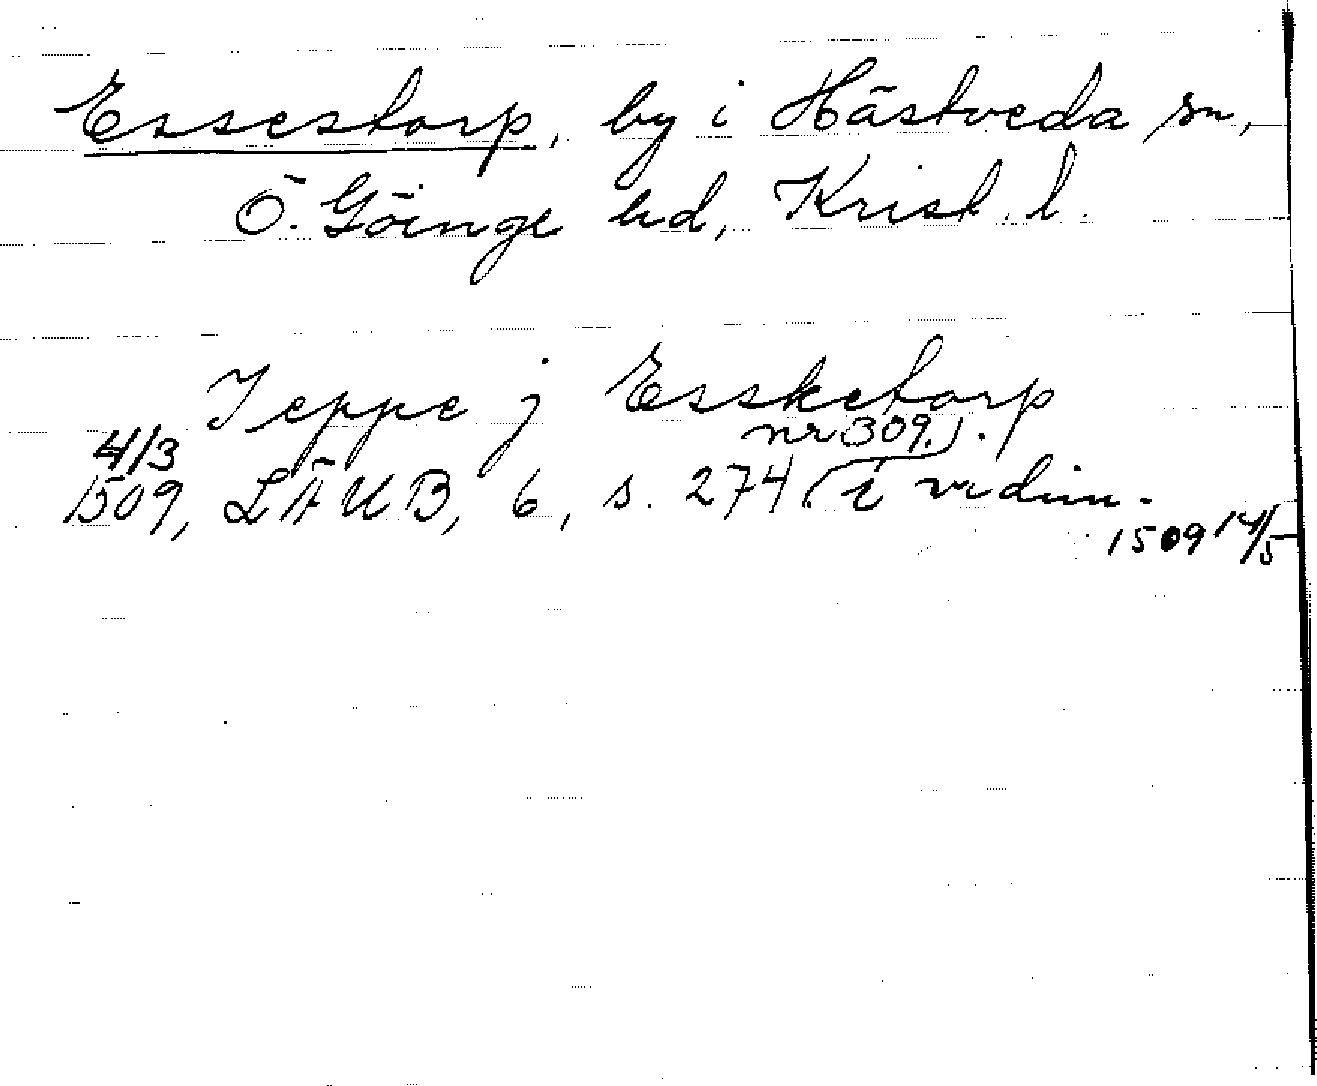 Essestorp, by i Hästveda sn,
Ö. Göinge hd, Krist. l.
Jeppe j Essketorp
4/3 nr 309.
1509, LÄUB, 6, s. 274 i vidim.
1509 14/5